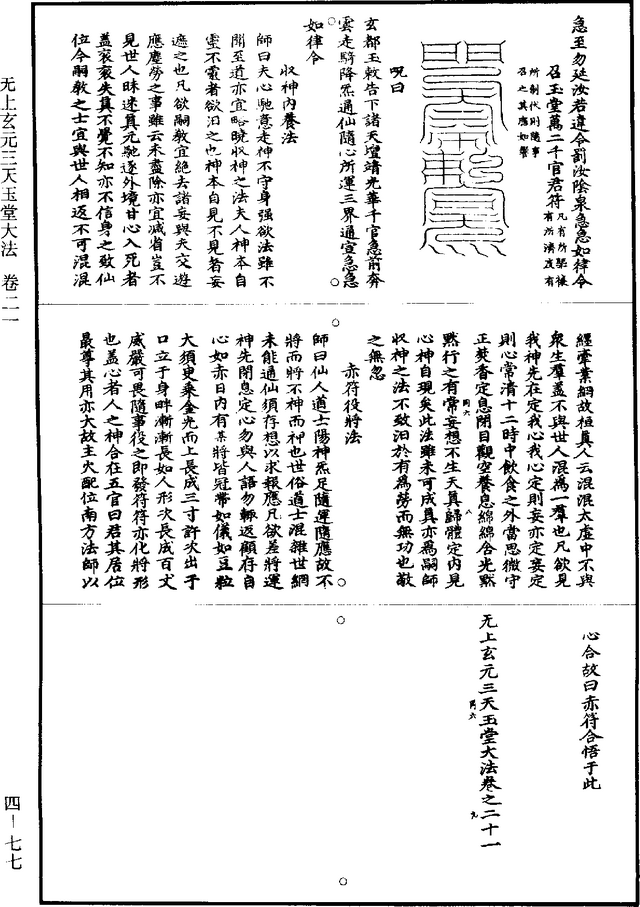 急至勿延汝若違令罰汝陰泉急急如律令
召玉堂萬二千官君符
凡有所舉優有所濟度有
所制代則隨事召之其應如響
呪曰
玄都玉敕告下諸天壇靖光華千官急前奔
雲走騎降炁通仙隨心所運三界通宣急急
如律令
收神内養法
師曰夫心馳意走神不守身强欲法雖不
聞至道亦宜略曉收神之法夫人神本自
靈不靈者欲汨之也神本自見不見者妄
遮之也凡欲嗣敎宜絶去諸妄與天交遊
應塵勞之事雖云未盡除亦宜減省豈不
見世人昧迷真元馳逐外境甘心入死者
蓋衮衮失真不覺不知亦不信身之致仙
位今嗣敎之士宜與世人相返不可混混
經牽業網故桓真人云混混太虚中不與
衆生羣蓋不與世人混爲一羣也凡欲見
我神先在定我心我心定則妄亦定妄定
則心常清十二時中飲食之外當思微守
正焚香定息閉目觀空養息綿綿含光默
默行之有常妄想不生天真歸體定内見
心神自現矣此法雖未可成真亦爲嗣師
收神之法不致汨於有爲勞而無功也敬
之無忽
赤符役將法
師曰仙人道士陽神炁足隨運隨應故不
將而將不神而神也世俗道士混雜世網
未能通仙須存想以求報應凡欲差將運
神先閉息定心勿與人語勿輒返顧存自
心如赤日内有某將皆冠帶如儀如豆粒
大須臾乘金光而上長成三寸許次出于
口立于身畔漸漸長如人形次長成百丈
威嚴可畏隨事役之即發符符亦化將形
也蓋心者人之神合在五官曰君其居位
最尊其用亦大故主火配位南方法師以
心合故曰赤符合悟于此
无上玄元三天玉堂大法卷之二十一
无上玄元三天玉堂大法 卷二一
四—七七